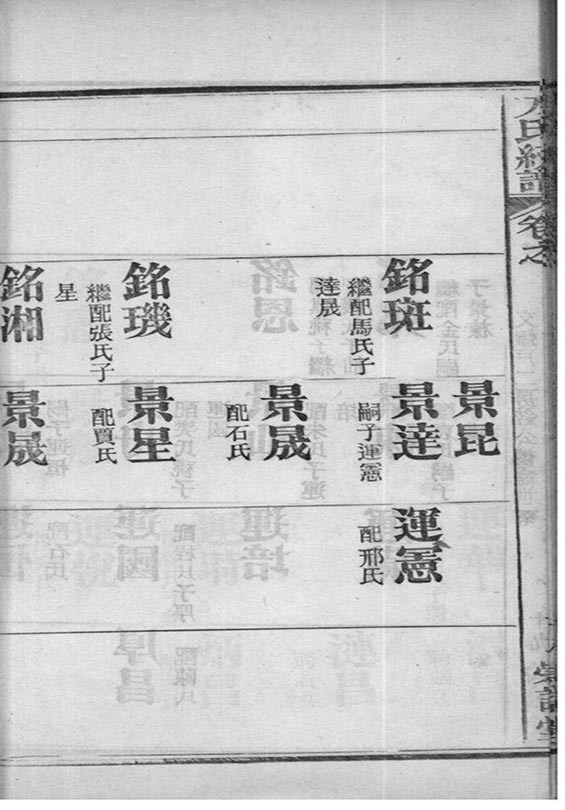 氏統譜
卷之
銘斑
繼配馬氏子
達晟
銘璣
繼配張氏子
星
銘湘
景昆
景達
嗣子運憲
景晟
配石氏
景星
配賈氏
景晟
運憲
配邢氏